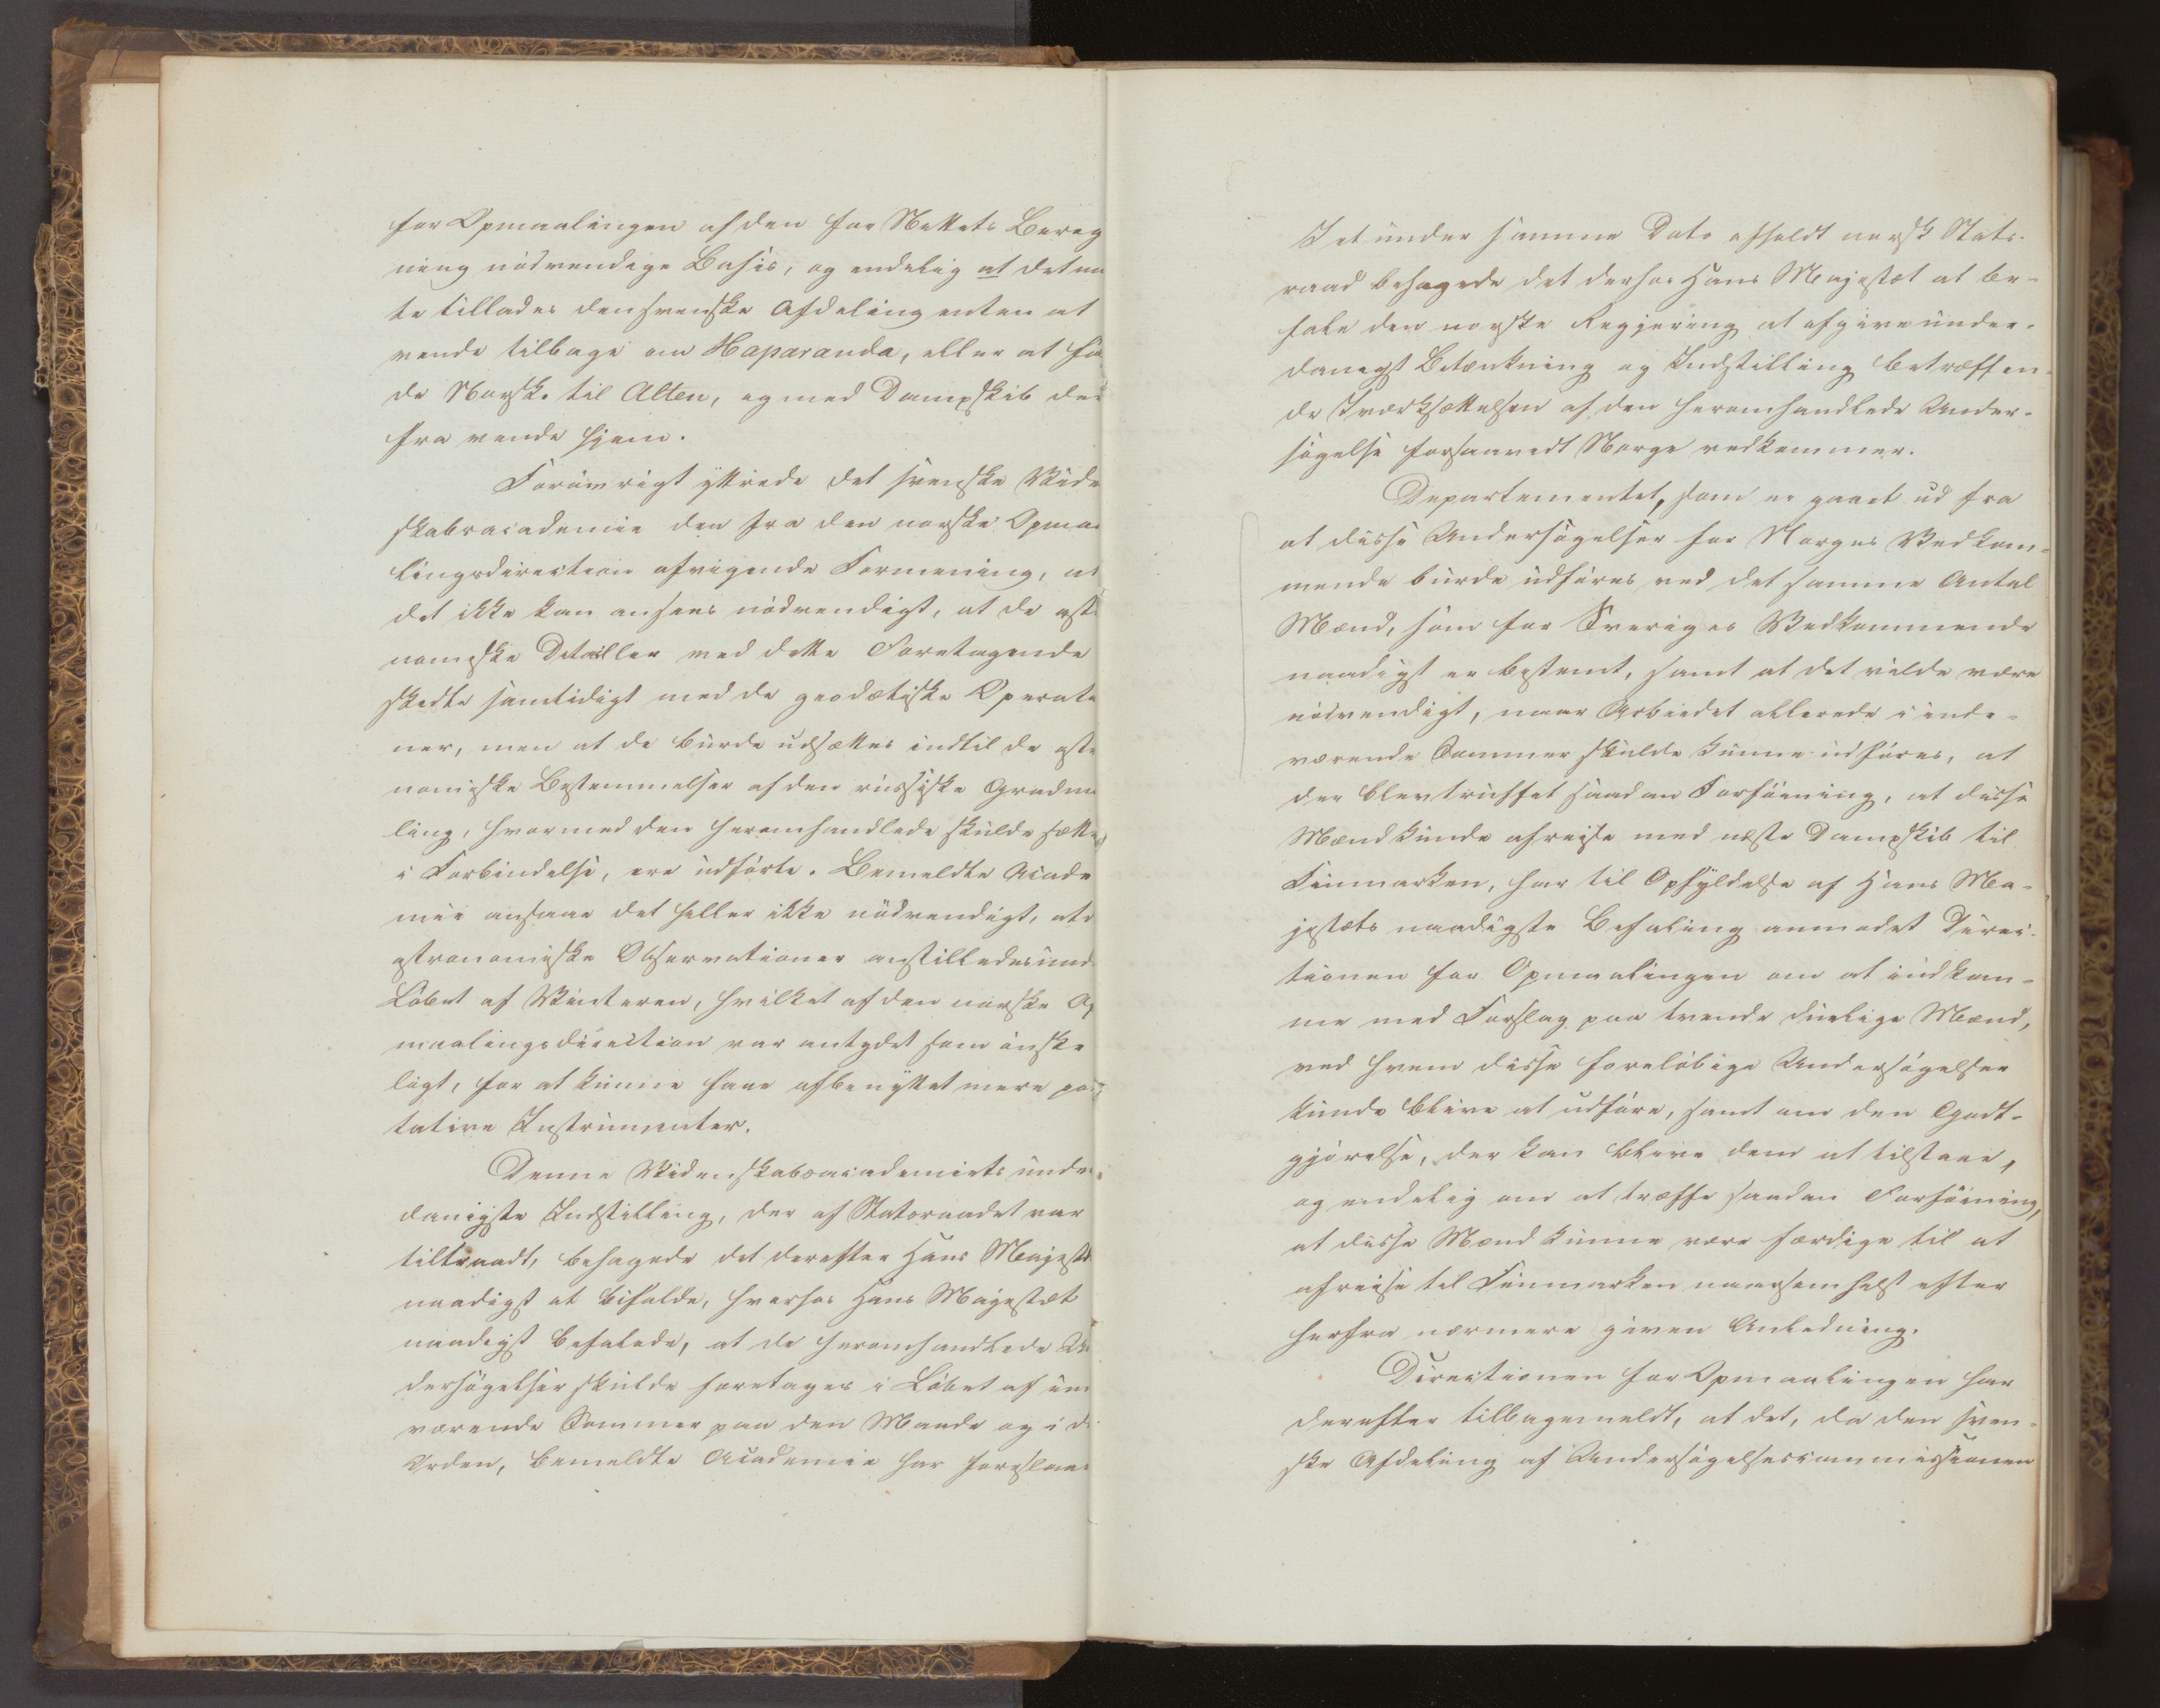 for Opmaalingen af den for Nettets Bereg
ning nödvendige Basis, og endelig at det maa
te tillades den svenske Afdeling enten at
vende tilbage om Haparanda, eller at föl
de Norske til Alten, og med Dampskib der
fra vende hjem.
Forövrigt yttrede det svenske Vide
skabsacademie den fra den norske Opmaa
lingsdirection afvigende Formening, at
det ikke kan ansees nödvendigt, at de ast
nomiske Detailler ved dette Foretagende
skedte samtidigt med de geodætiske Operatio
ner, men at de burde udsættes indtil de astro
nomiske Bestemmelser af den russiske Gradmaa
ling, hvormed den heromhandlede skulde sættes
i Forbindelse, ere udförte. Bemeldte Acade
mie ansaae det heller ikke nödvendigt, at
astronomiske Observationer anstilledes und
Löbet af Vinteren, hvilket af den norske Op
maalingsdirection var antydet som önske
ligt, for at kunne faae afbenyttet mere por
tative Instrumenter.
Denne Videnskabsacademiets under
danigste Indstilling, der af Statsraadet var
tiltraadt, behagede det derefter Hans Majestæt
naadigst at bifalde, hvorhos Hans Majestæt
naadigst befalede, at de heromhandlede Un
dersögelser skulde foretages i Löbet af inde
værende Sommer paa den Maade og i d
Orden, bemeldte Academie har foreslaaet
I et under samme Dato afholdt norsk Stats-
raad behagede det derhos Hans Majestæt at be-
fale den norske Regjering at afgive under-
danigst Betænkning og Indstilling betræffen-
de Iværksættelsen af den heromhandlede Under-
sögelse forsaavidt Norge vedkommer.
Departementet, som er gaaet ud fra
at disse Undersögelser for Norges Vedkom-
mende burde udföres ved det samme Antal
Mænd, som for Sveriges Vedkommende
naadigst er bestemt, samt at det vilde være
nödvendigt, naar Arbeidet allerede i inde-
værende Sommer skulde kunne udföres, at
der blev truffet saadan Forföining, at disse
Mænd kunde afreise med næste Dampskib til
Finmarken, har til Opfyldelse af Hans Ma-
jestæts naadigste Befaling anmodet Direc-
tionen for Opmaalingen om at indkom-
me med Forslag paa tvende duelige Mænd,
ved hvem disse foreløbige Undersögelser
kunde blive at udföre, samt om den Godt-
gjörelse, der kan blive dem at tilstaae,
og endelig om at træffe saadan Forföining,
at disse Mænd kunne være færdige til at
afreise til Finmarken naarsomhelst efter
herfra nærmere given Anledning.
Directionen for Opmaalingen har
derefter tilbagemeldt, at det, da den sven-
ske Afdeling af Undersögelsescommissionen